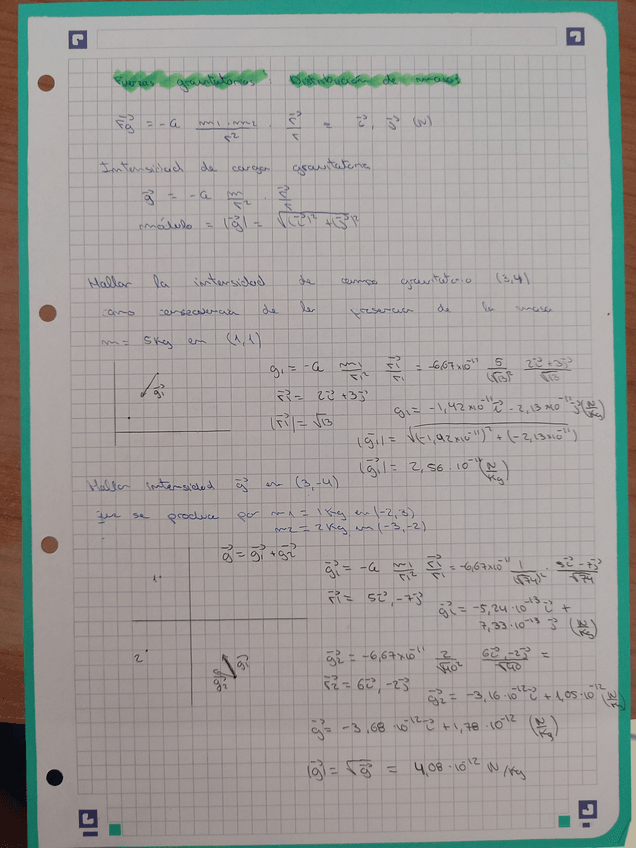 Fuerzas gravitatorias. Distribución de masas
Fg = -G m1·m2/r² · r/r = i, j (N)
Intensidad de campo gravitatorio
g = -G m/r² · r/r
módulo = |g| = √(i)² + (j)²
Hallar la intensidad de campo gravitatorio (3,4)
como consecuencia de la presencia de la masa
m = 5Kg en (1,1)
g1 = -G m1/r1² r1/r1 = -6,67x10⁻¹¹ 5/(√13)² 2i+3j/√13
r1 = 2i+3j
|r1| = √13
g1 = -1,42x10⁻¹¹ i - 2,13x10⁻¹¹ j (N/Kg)
g1
|g1| = √(-1,42x10⁻¹¹)² + (-2,13x10⁻¹¹)
|g1| = 2,56·10⁻¹¹ (N/Kg)
Hallar intensidad g en (3,-4)
que se produce por m1 = 1Kg en (-2,3)
m2 = 2Kg en (-3,-2)
g = g1 + g2
g1 = -G m1/r1² r1/r1 = -6,67x10⁻¹¹ 1/(√74)² · 5i-7j/√74
r1 = 5i, -7j
g1 = -5,24·10⁻¹³ i +
7,33·10⁻¹³ j (N/Kg)
1·
2·
g1
g2
g2 = -6,67x10⁻¹¹ 2/√40² 6i,-2j/√40 =
r2 = 6i, -2j
g2 = -3,16·10⁻¹² i + 1,05·10⁻¹² (N/Kg)
g = -3,68·10⁻¹² i + 1,78·10⁻¹² (N/Kg)
|g| = √g = 4,08·10⁻¹² N/Kg